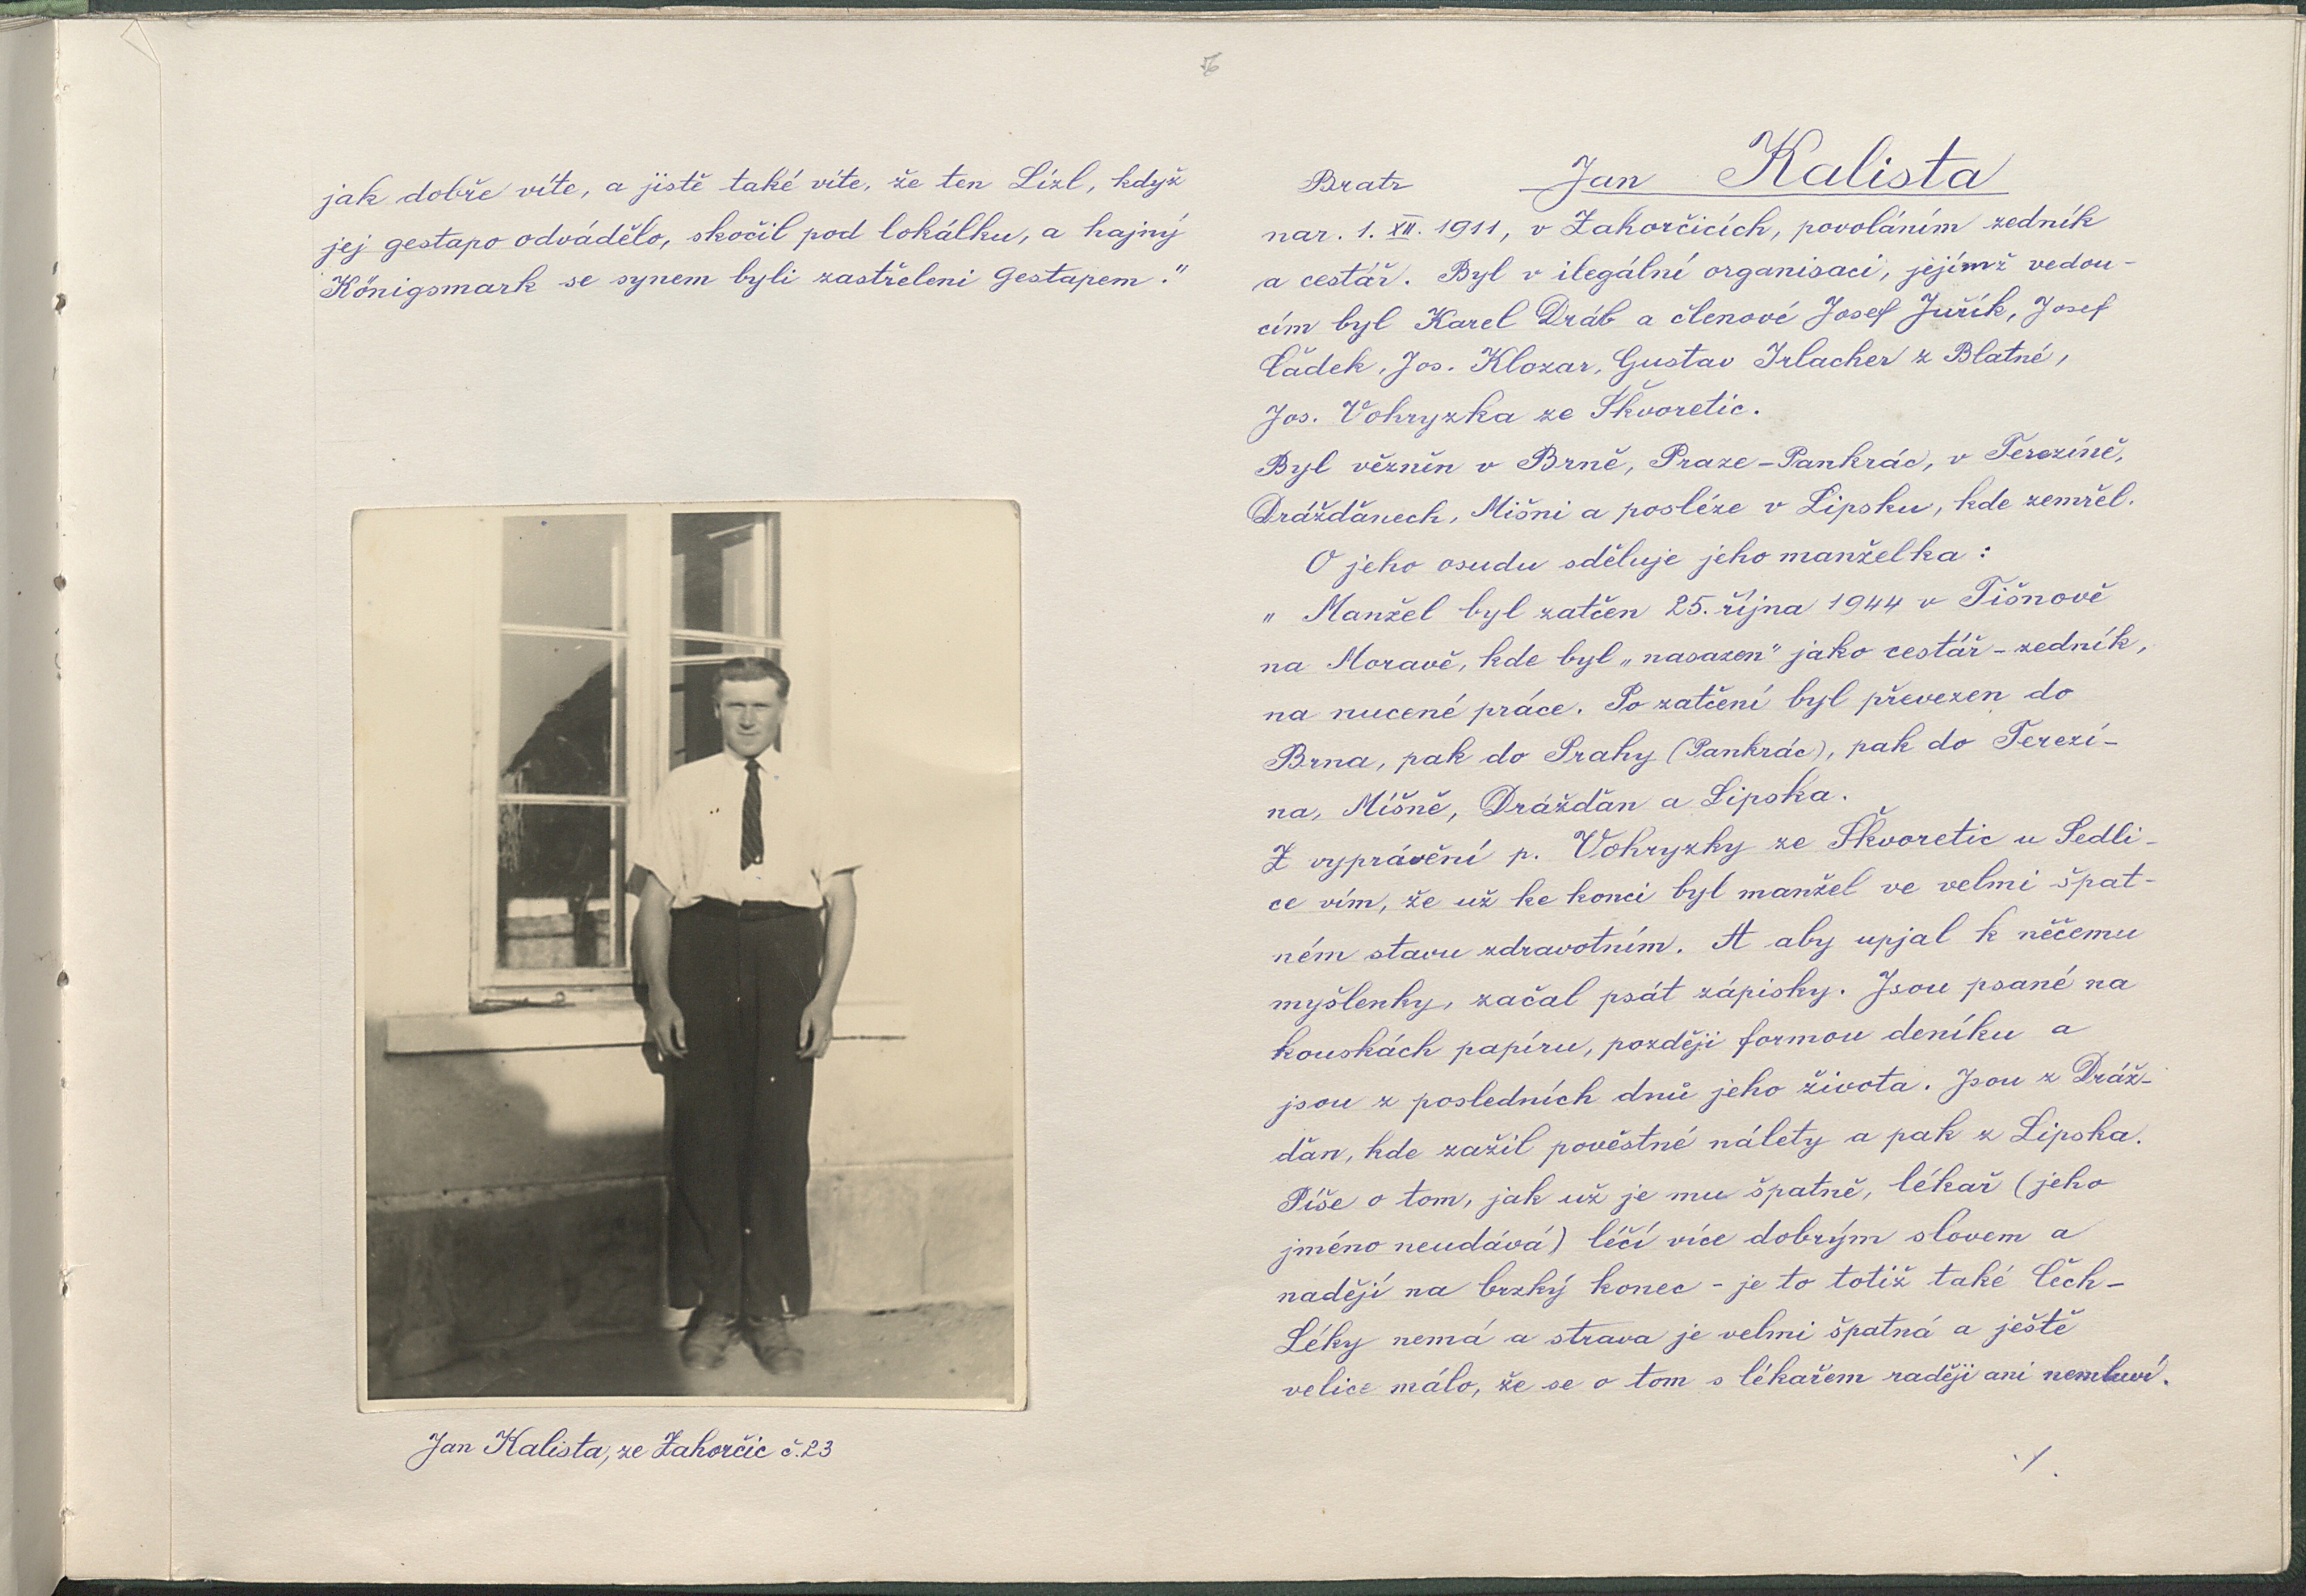 56
jak dobře víte, a jistě také víte, že ten Lízl, když
jej gestapo odvádělo, skočil pod lokálku, a hajný
Königsmark se synem byli zastřeleni gestapem."
Jan Kalista, ze Zahorčic č. 23
Bratr Jan Kalista
nar. 1. XII. 1911, v Zahorčicích, povoláním zedník
a cestář. Byl v ilegální organisaci, jejímž vedou-
cím byl Karel Dráb a členové Josef Juřík, Josef
Čádek, Jos. Klozar, Gustav Irlacher z Blatné,
Jos. Vohryzka ze Škvoretic.
Byl vězněn v Brně, Praze - Pankrác, v Terezíně,
Drážďanech, Míšni a posléze v Lipsku, kde zemřel.
O jeho osudu sděluje jeho manželka:
„Manžel byl zatčen 25. října 1944 v Tišnově
na Moravě, kde byl „nasazen" jako cestář - zedník,
na nucené práce. Po zatčení byl převezen do
Brna, pak do Prahy (Pankrác), pak do Terezí-
na, Míšně, Drážďan a Lipska.
Z vyprávění p. Vohryzky ze Škvoretic u Sedli-
ce vím, že už ke konci byl manžel ve velmi špat-
ném stavu zdravotním. A aby upjal k něčemu
myšlenky, začal psát zápisky. Jsou psané na
kouskách papíru, později formou deníku a
jsou z posledních dnů jeho života. Jsou z Dráž-
ďan, kde zažil pověstné nálety a pak z Lipska.
Píše o tom, jak už je mu špatně, lékař (jeho
jméno neudává) léčí více dobrým slovem a
nadějí na brzký konec - je to totiž také Čech -
Léky nemá a strava je velmi špatná a ještě
velice málo, že se o tom s lékařem raději ani nemluví.
./.